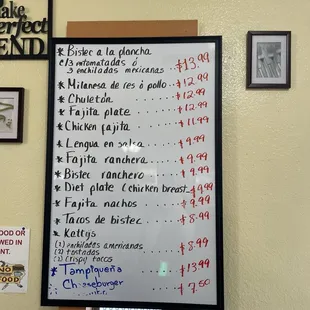 ake
erfect
END.
* Bistec a la plancha
c/3 entomatadas ó
3 enchiladas mexicanas $13.99
* Milanesa de res ó pollo $12.99
* Chuletón $12.99
* Fajita plate $12.99
* Chicken fajita $11.99
* Lengua en salsa $9.99
* Fajita ranchera $9.99
* Bistec ranchero $9.99
* Diet plate (chicken breast $9.99
* Fajita nachos $9.99
* Tacos de bistec $8.99
* Kettys
(2) enchiladas americanas $8.99
(2) tostadas
(2) crispy tacos
* Tampiqueña $13.99
Cheeseburger $7.50
OOD OR
WED IN
NT.
NO
FOOD